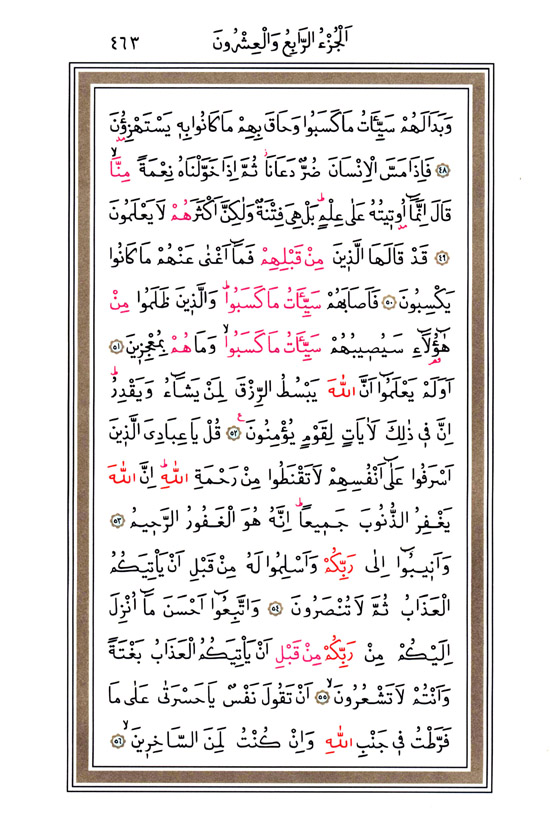 اَلْجُزْءُ الرَّابِعُ وَالْعِشْرُونَ ٤٦٣
وَبَدَالَهُمْ سَيِّـَٔاتُ مَا كَسَبُوا وَحَاقَ بِهِمْ مَا كَانُوا بِه۪ يَسْتَهْزِؤُ۫نَ
﴿٤٨﴾ فَاِذَا مَسَّ الْاِنْسَانَ ضُرٌّ دَعَانَاۘ ثُمَّ اِذَا خَوَّلْنَاهُ نِعْمَةً مِنَّاۙ
قَالَ اِنَّمَٓا اُو۫ت۪يتُهُ عَلٰى عِلْمٍۜ بَلْ هِيَ فِتْنَةٌ وَلٰكِنَّ اَكْثَرَهُمْ لَا يَعْلَمُونَ
﴿٤٩﴾ قَدْ قَالَهَا الَّذ۪ينَ مِنْ قَبْلِهِمْ فَمَٓا اَغْنٰى عَنْهُمْ مَا كَانُوا
يَكْسِبُونَ ﴿٥٠﴾ فَاَصَابَهُمْ سَيِّـَٔاتُ مَا كَسَبُواۜ وَالَّذ۪ينَ ظَلَمُوا مِنْ
هٰٓؤُ۬لَٓاءِ سَيُص۪يبُهُمْ سَيِّـَٔاتُ مَا كَسَبُواۙ وَمَا هُمْ بِمُعْجِز۪ينَ ﴿٥١﴾
اَوَلَمْ يَعْلَمُٓوا اَنَّ اللّٰهَ يَبْسُطُ الرِّزْقَ لِمَنْ يَشَٓاءُ وَيَقْدِرُۜ
اِنَّ ف۪ي ذٰلِكَ لَاٰيَاتٍ لِقَوْمٍ يُؤْمِنُونَ۟ ﴿٥٢﴾ قُلْ يَا عِبَادِيَ الَّذ۪ينَ
اَسْرَفُوا عَلٰٓى اَنْفُسِهِمْ لَا تَقْنَطُوا مِنْ رَحْمَةِ اللّٰهِۜ اِنَّ اللّٰهَ
يَغْفِرُ الذُّنُوبَ جَم۪يعًاۜ اِنَّهُ هُوَ الْغَفُورُ الرَّح۪يمُ ﴿٥٣﴾
وَاَن۪يبُٓوا اِلٰى رَبِّكُمْ وَاَسْلِمُوا لَهُ مِنْ قَبْلِ اَنْ يَأْتِيَكُمُ
الْعَذَابُ ثُمَّ لَا تُنْصَرُونَ ﴿٥٤﴾ وَاتَّبِعُٓوا اَحْسَنَ مَٓا اُنْزِلَ
اِلَيْكُمْ مِنْ رَبِّكُمْ مِنْ قَبْلِ اَنْ يَأْتِيَكُمُ الْعَذَابُ بَغْتَةً
وَاَنْتُمْ لَا تَشْعُرُونَۙ ﴿٥٥﴾ اَنْ تَقُولَ نَفْسٌ يَا حَسْرَتٰى عَلٰى مَا
فَرَّطْتُ ف۪ي جَنْبِ اللّٰهِ وَاِنْ كُنْتُ لَمِنَ السَّاخِر۪ينَۙ ﴿٥٦﴾